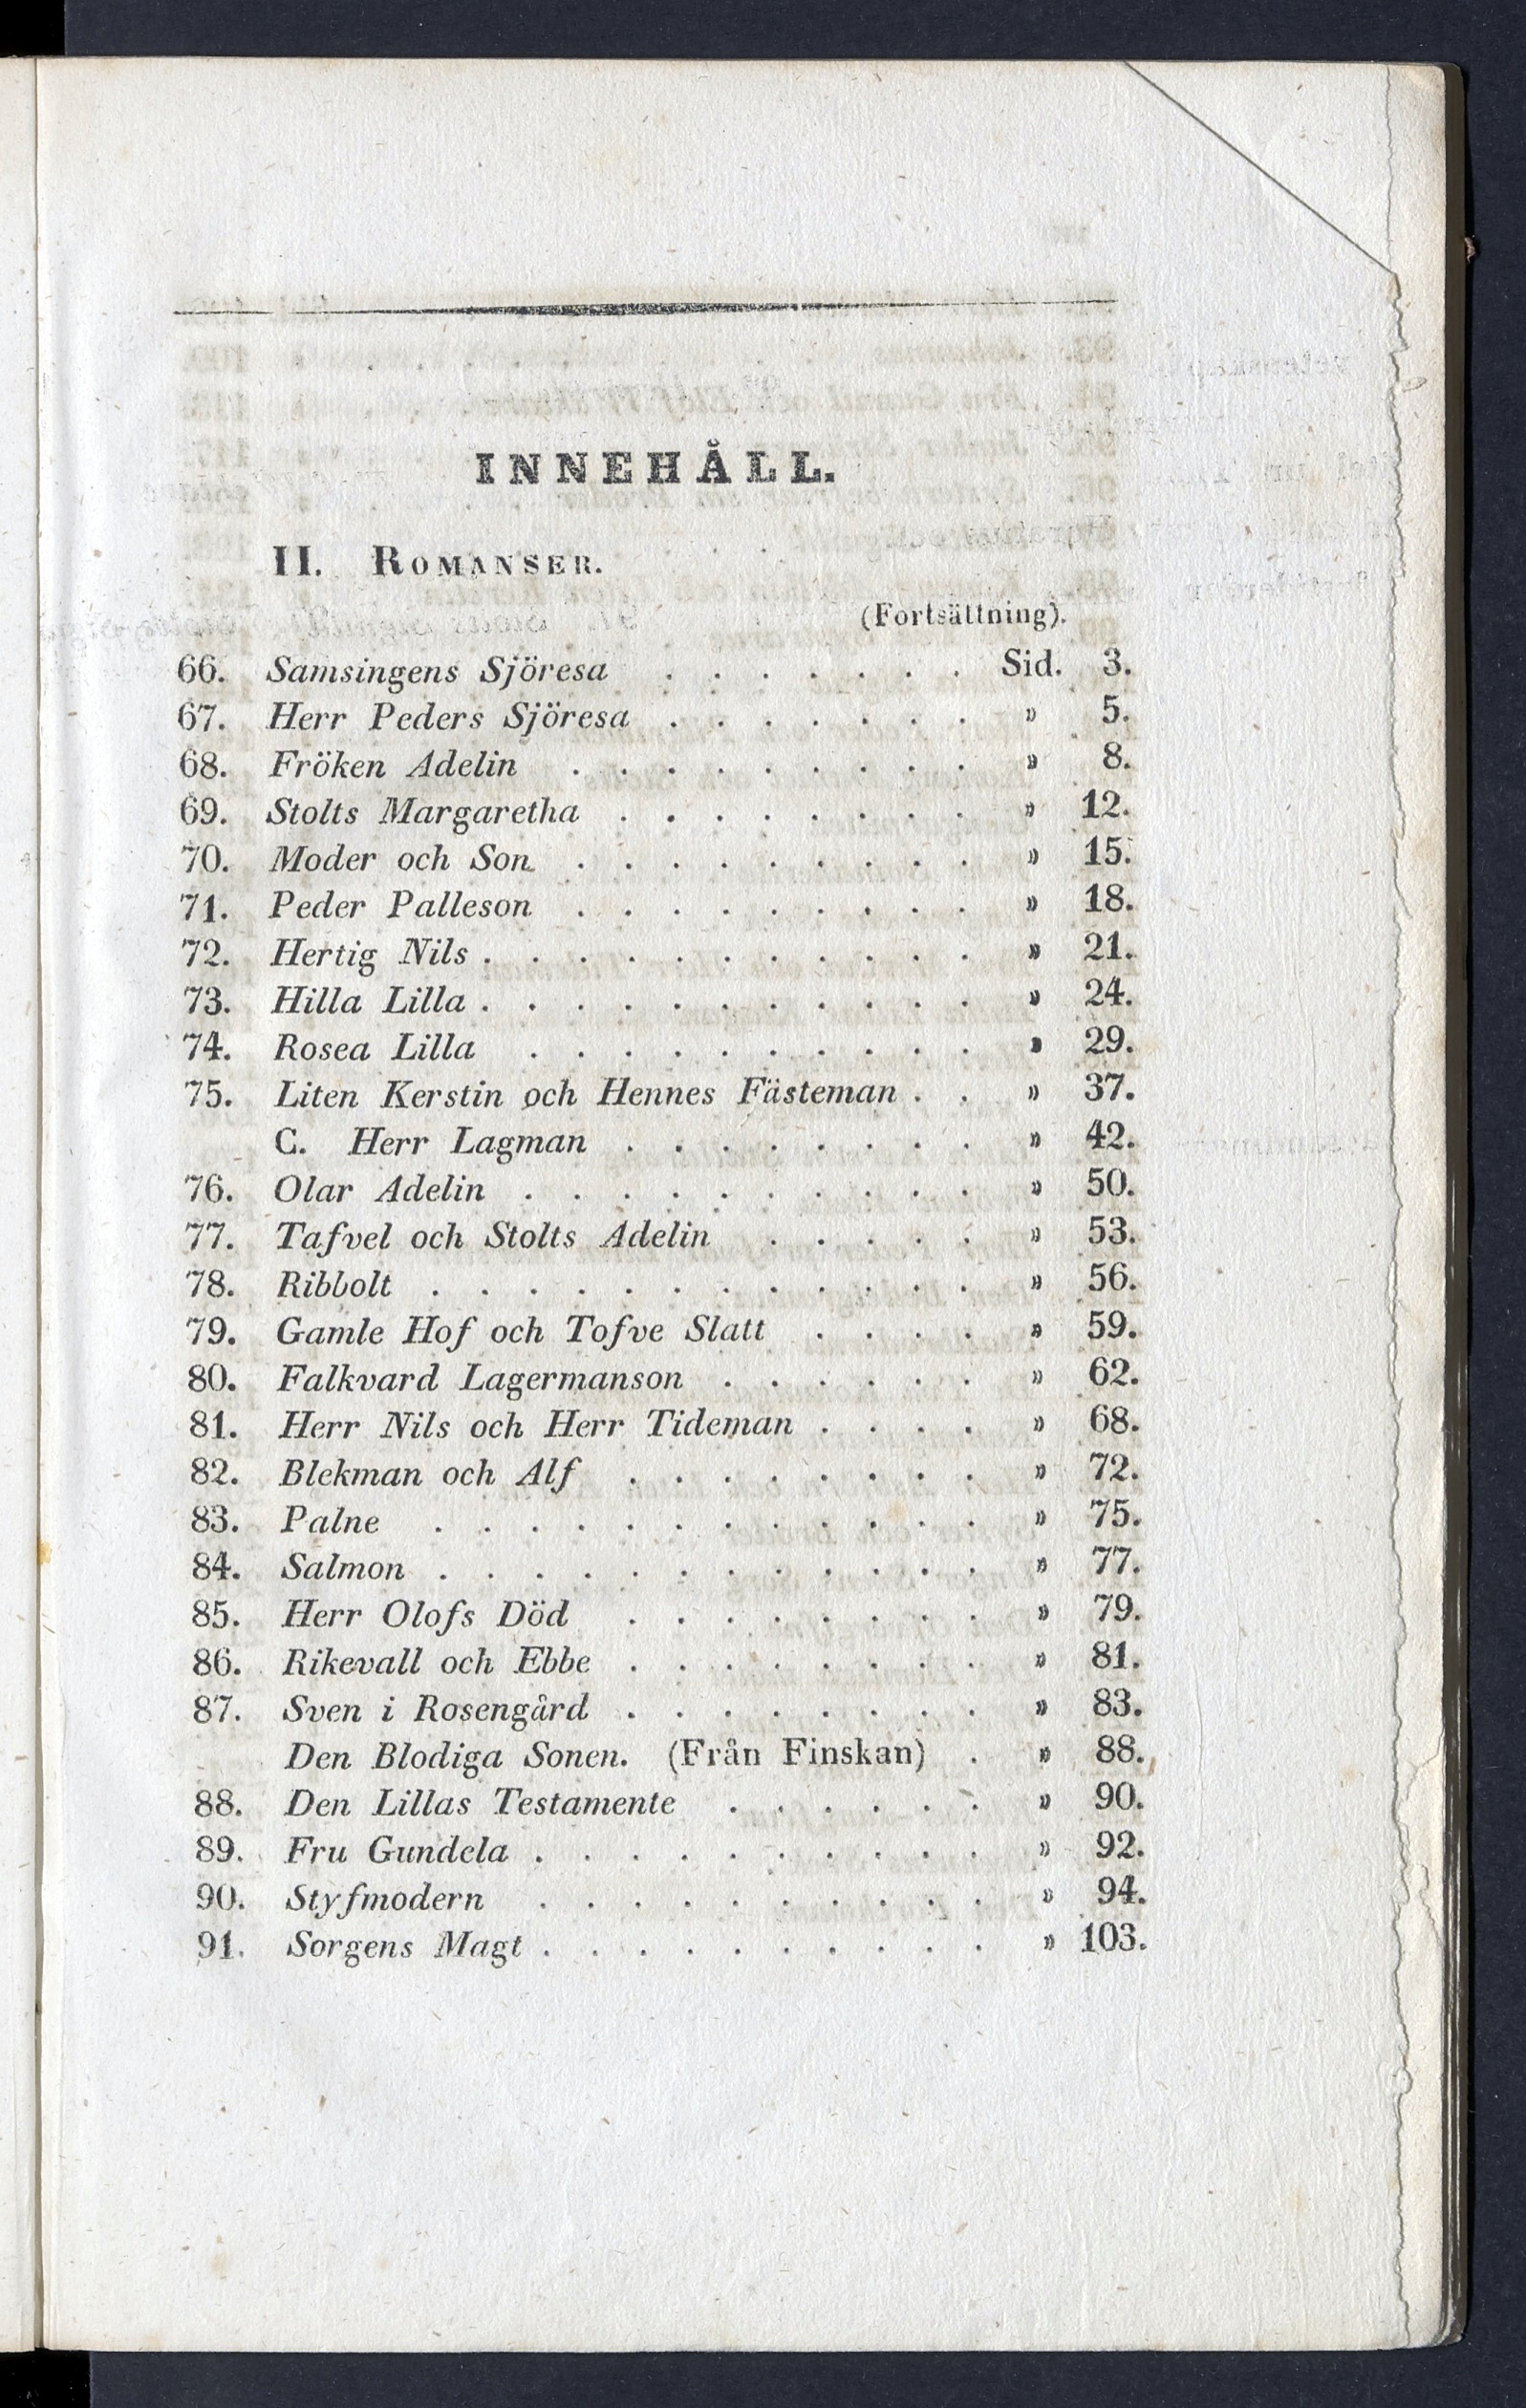 INNEHÅLL.
II. ROMANSER.
(Fortsättning).
66. Samsingens Sjöresa . . . . . . . Sid. 3.
67. Herr Peders Sjöresa . . . . . . . » 5.
68. Fröken Adelin . . . . . . . . . » 8.
69. Stolts Margaretha . . . . . . . . » 12.
70. Moder och Son . . . . . . . . . » 15.
71. Peder Palleson . . . . . . . . . » 18.
72. Hertig Nils . . . . . . . . . . . » 21.
73. Hilla Lilla . . . . . . . . . . . » 24.
74. Rosea Lilla . . . . . . . . . . » 29.
75. Liten Kerstin och Hennes Fästeman . . » 37.
C. Herr Lagman . . . . . . . . » 42.
76. Olar Adelin . . . . . . . . . . » 50.
77. Tafvel och Stolts Adelin . . . . . » 53.
78. Ribbolt . . . . . . . . . . . . » 56.
79. Gamle Hof och Tofve Slatt . . . . » 59.
80. Falkvard Lagermanson . . . . . . » 62.
81. Herr Nils och Herr Tideman . . . . » 68.
82. Blekman och Alf . . . . . . . . » 72.
83. Palne . . . . . . . . . . . . » 75.
84. Salmon . . . . . . . . . . . . » 77.
85. Herr Olofs Död . . . . . . . . » 79.
86. Rikevall och Ebbe . . . . . . . . » 81.
87. Sven i Rosengård . . . . . . . . » 83.
Den Blodiga Sonen. (Från Finskan) . » 88.
88. Den Lillas Testamente . . . . . . » 90.
89. Fru Gundela . . . . . . . . . . » 92.
90. Styfmodern . . . . . . . . . . » 94.
91. Sorgens Magt . . . . . . . . . . » 103.